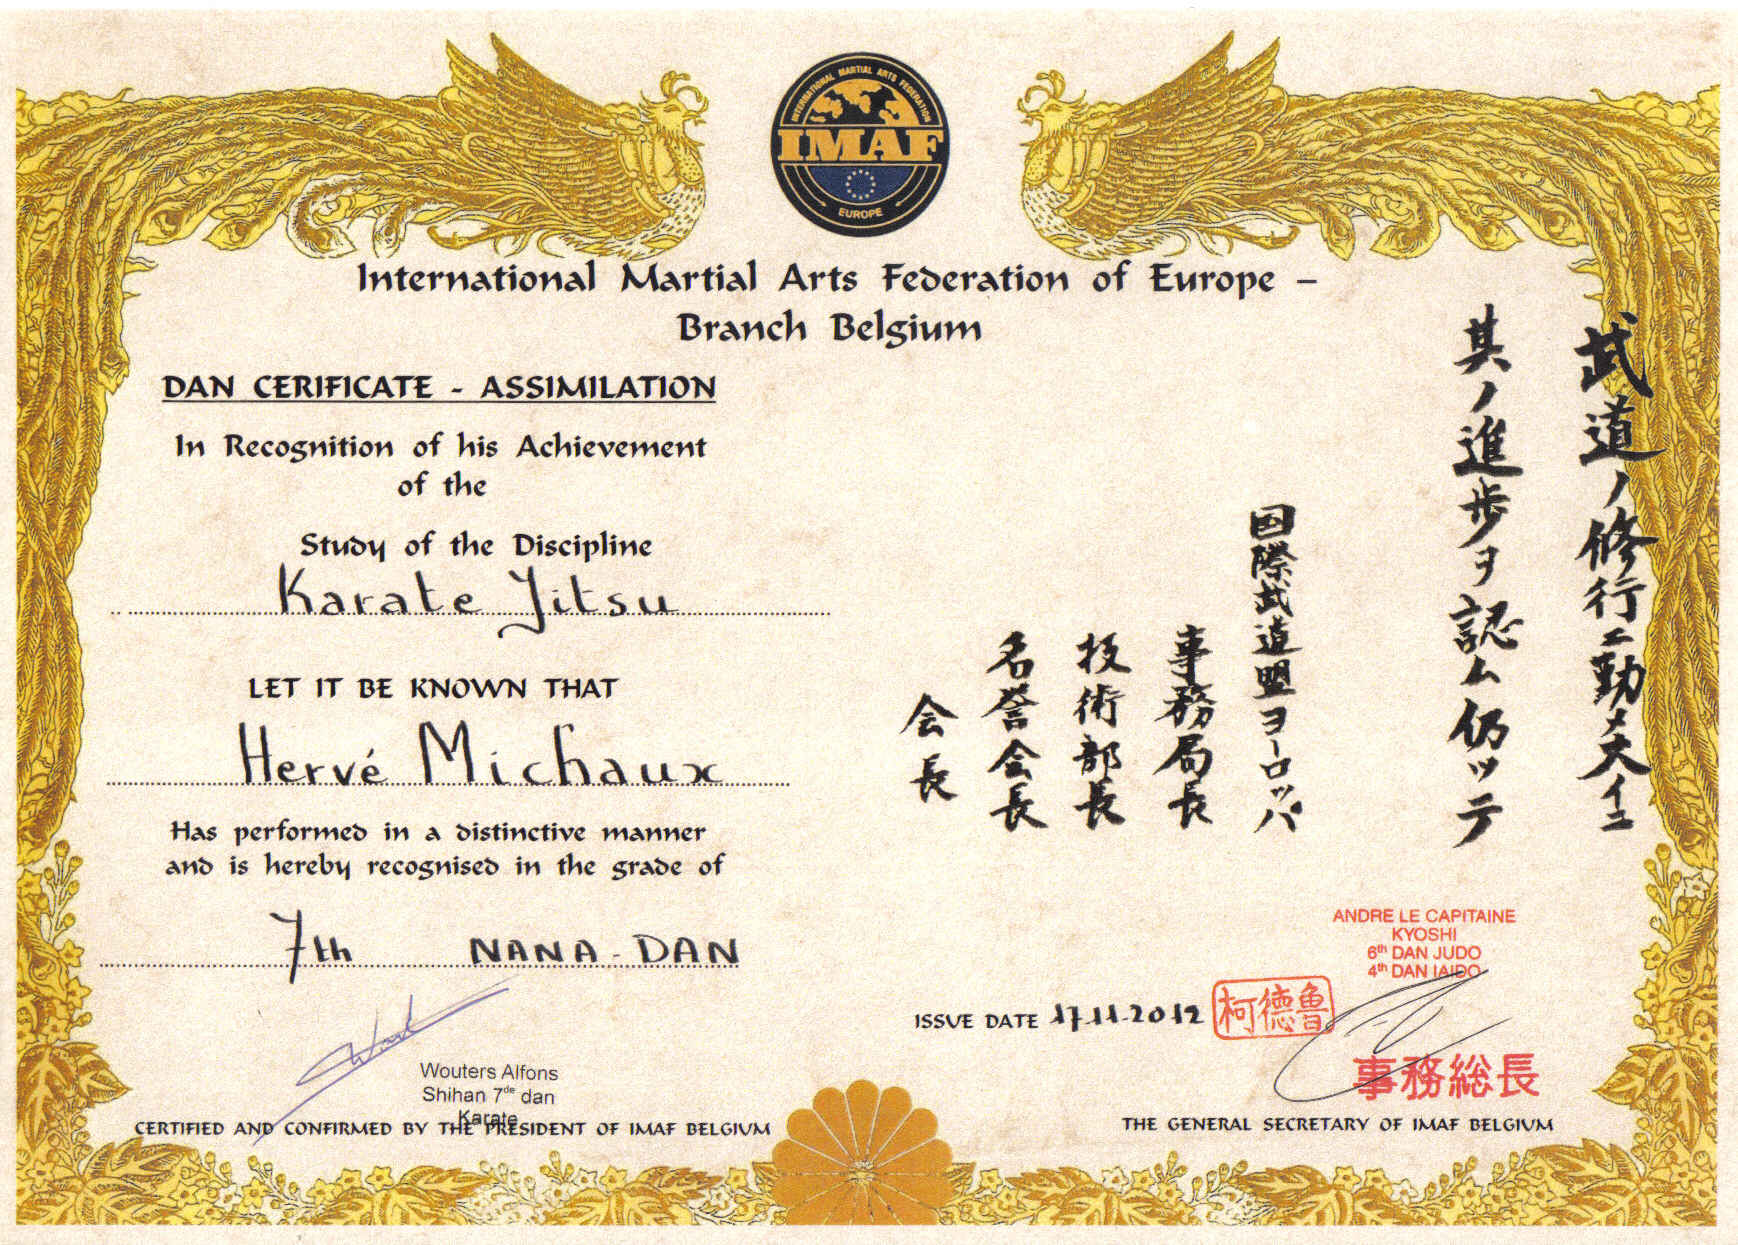 INTERNATIONAL MARTIAL ARTS FEDERATION
IMAF
EUROPE
International Martial Arts Federation of Europe –
Branch Belgium
DAN CERIFICATE - ASSIMILATION
In Recognition of his Achievement
of the
Study of the Discipline
Karate Jitsu
LET IT BE KNOWN THAT
Hervé Michaux
Has performed in a distinctive manner
and is hereby recognised in the grade of
7th NANA-DAN
Wouters Alfons
Shihan 7de dan
Karate
CERTIFIED AND CONFIRMED BY THE PRESIDENT OF IMAF BELGIUM
武道ノ修行ニ勤メ大イニ
其ノ進歩ヲ認ム仍ッテ
国際武道盟ヨーロッパ
事務局長
技術部長
名誉会長
会長
ANDRE LE CAPITAINE
KYOSHI
6th DAN JUDO
4th DAN IAIDO
ISSUE DATE 17.11.2012
柯德魯
事務総長
THE GENERAL SECRETARY OF IMAF BELGIUM